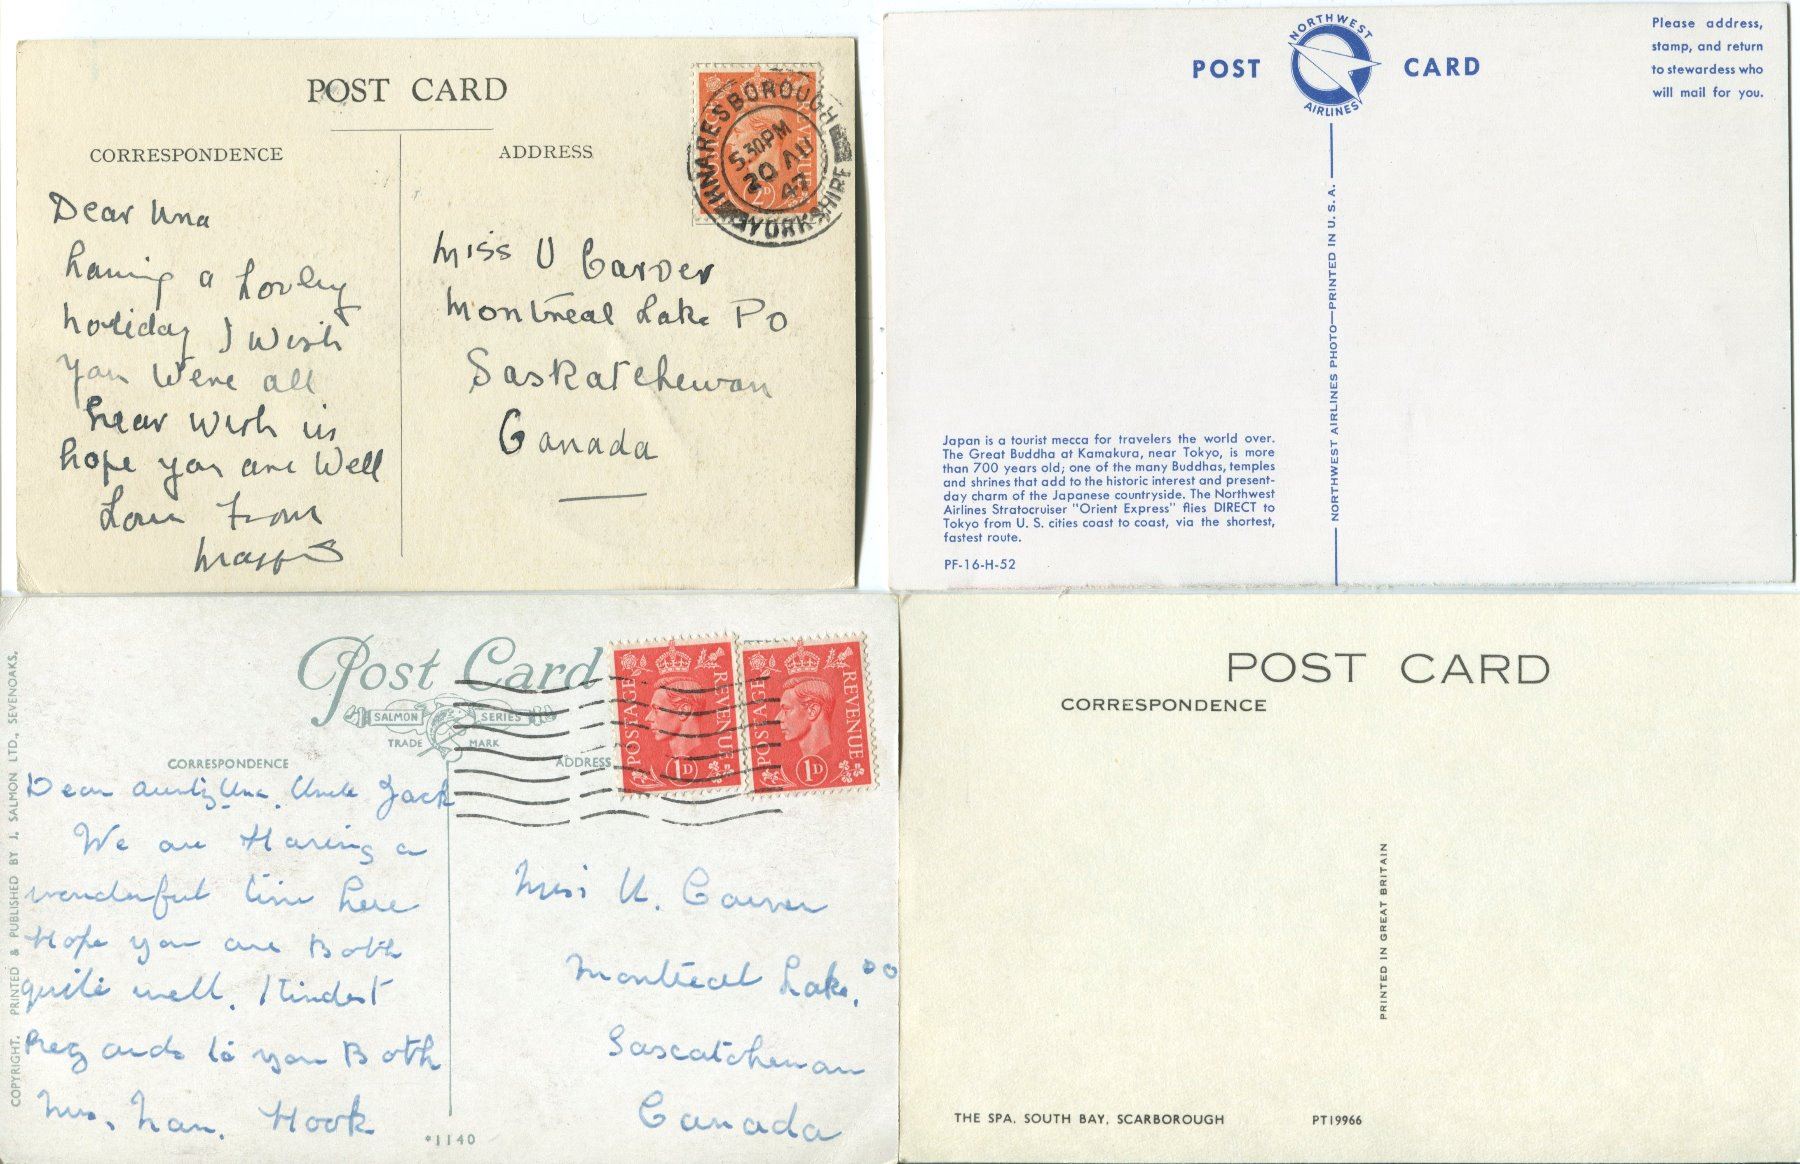 POST CARD
CORRESPONDENCE
ADDRESS
KNARESBOROUGH
YORKSHIRE
5.30PM
20 AU
47
POSTAGE REVENUE
2D
Dear Una
having a Lovley
holiday I Wish
you Were all
hear Wish is
hope you are Well
Love From
Miss U Garder
Montreal Lake PO
Saskatchewan
Canada
NORTHWEST
AIRLINES
POST CARD
Please address,
stamp, and return
to stewardess who
will mail for you.
NORTHWEST AIRLINES PHOTO—PRINTED IN U. S. A.
Japan is a tourist mecca for travelers the world over.
The Great Buddha at Kamakura, near Tokyo, is more
than 700 years old; one of the many Buddhas, temples
and shrines that add to the historic interest and present-
day charm of the Japanese countryside. The Northwest
Airlines Stratocruiser "Orient Express" flies DIRECT to
Tokyo from U. S. cities coast to coast, via the shortest,
fastest route.
PF-16-H-52
Post Card
SALMON SERIES
TRADE MARK
CORRESPONDENCE
ADDRESS
POSTAGE REVENUE
1D
POSTAGE REVENUE
1D
COPYRIGHT. PRINTED & PUBLISHED BY J. SALMON LTD., SEVENOAKS.
Dear Aunty Una. Uncle Jack
We are Having a
wonderful time here
Hope you are Both
quite well. Kindest
Regards to you Both
Mrs. Nan. Hook
*1140
Miss U. Carver
Montreal Lake. PO
Sascatchewan
Canada
POST CARD
CORRESPONDENCE
PRINTED IN GREAT BRITAIN
THE SPA, SOUTH BAY, SCARBOROUGH
PT19966